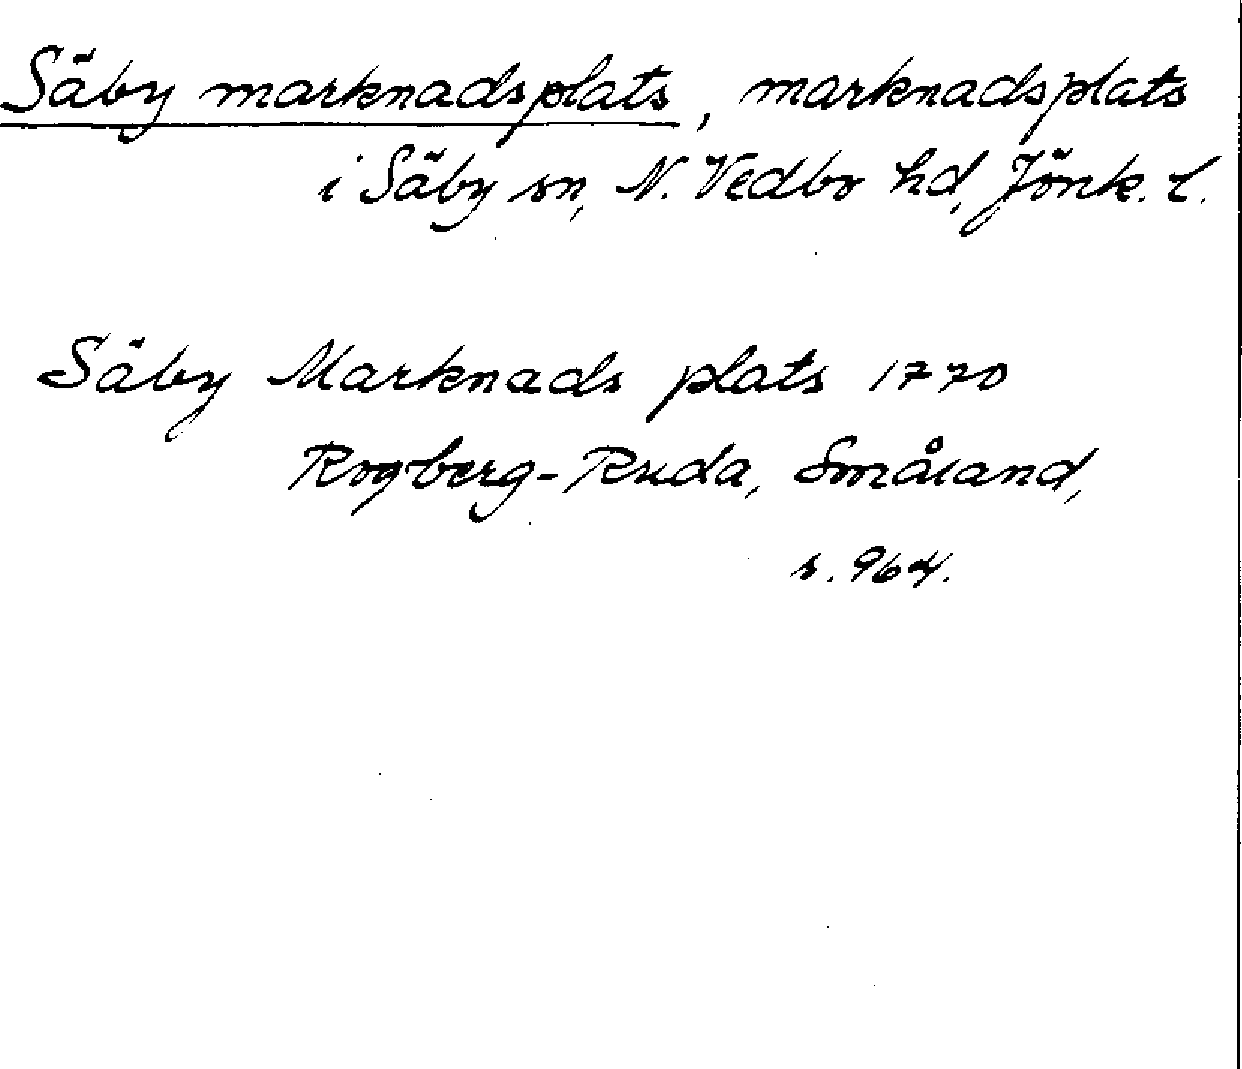 Säby marknadsplats, marknadsplats
i Säby sn, N. Vedbo hd, Jönk. l.
Säby Marknads plats 1770
Rogberg-Ruda, Småland,
s. 964.